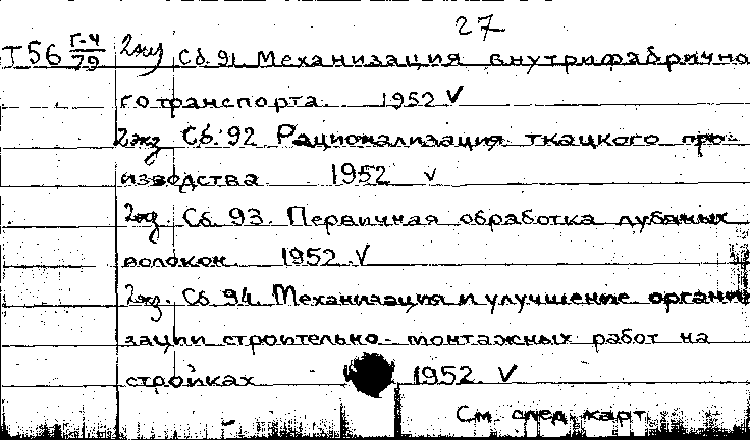 27
Т56 Г-4/79 2экз Сб. 91. Механизация внутрифабрично
го транспорта. 1952 V
2экз Сб. 92 Рационализация ткацкого про-
изводства 1952 V
2экз. Сб. 93. Первичная обработка лубяных
волокон. 1952. V
2экз. Сб. 94. Механизация и улучшение органи
зации строительно-монтажных работ на
стройках 1952. V
См. след. карт